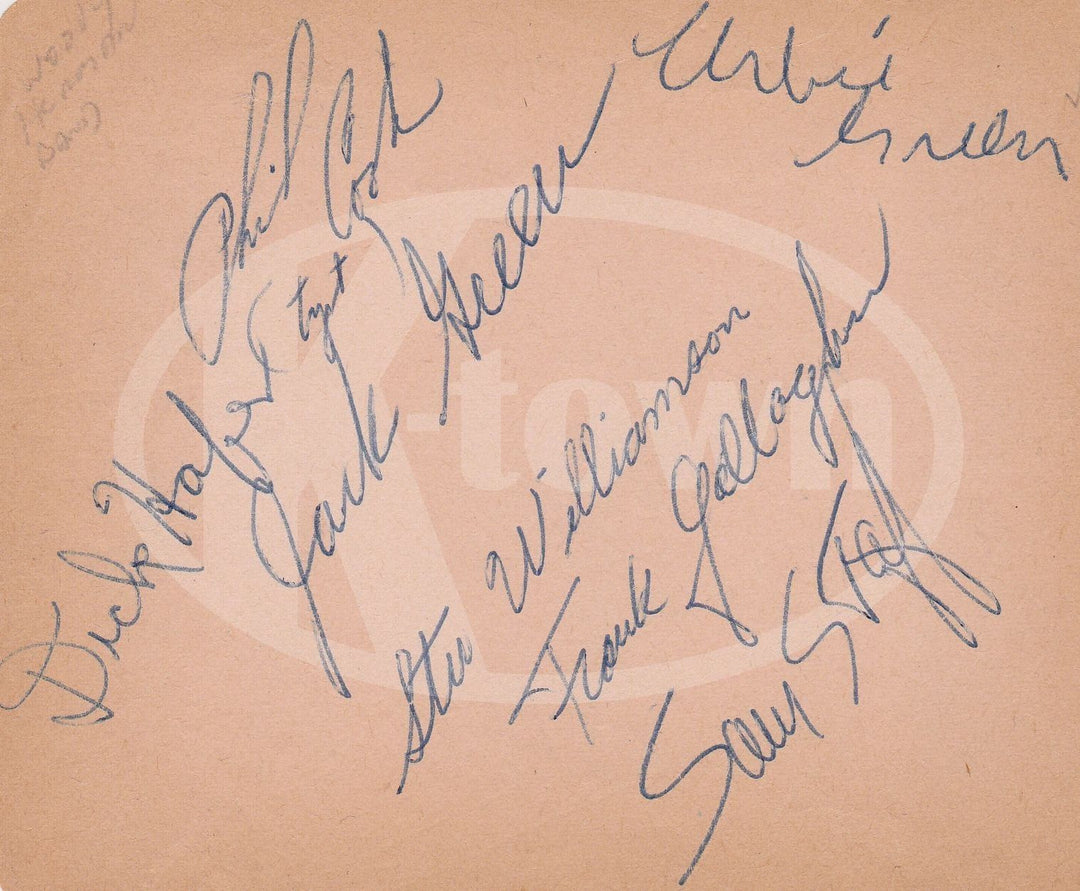 Woody
Herman
Band
Urbie
Green
Phil Cook
tpt
Dick Hafer
Jack Green
Stu Williamson
Frank Gallagher
Sam Staff
K-town